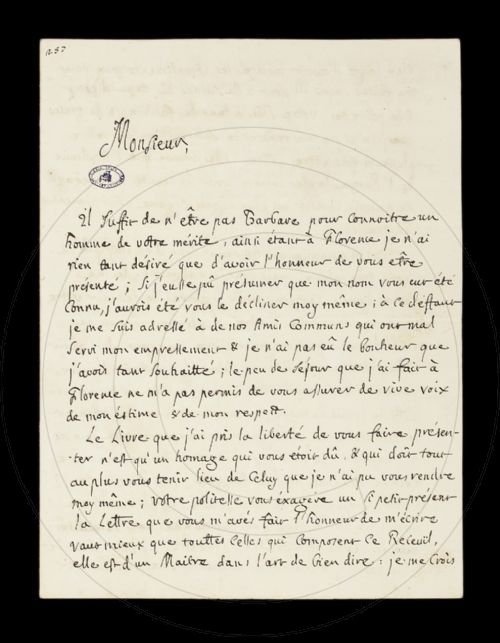 253
Monsieur,
il suffit de n'être pas Barbare pour connoitre un
homme de votre mérite, ainsi étant à Florence je n'ai
rien tant désiré que d'avoir l'honneur de vous etre
présenté ; si j'eusse pû présumer que mon nom vous eut été
Connu, j'aurois été vous le décliner moy même ; à ce deffaut
je me suis adressé à de nos Amis Communs qui ont mal
servi mon empressement & je n'ai pas eû le bonheur que
j'avois tant souhaitté ; le peu de séjour que j'ai fait à
Florence ne m'a pas permis de vous assurer de vive voix
de mon éstime & de mon respect.
Le Livre que j'ai pris la liberté de vous faire présen-
ter n'est qu'un homage qui vous étoit dû, & qui doit tout
au plus vous tenir lieu de Celuy que je n'ai pu vous rendre
moy même ; votre politesse vous éxagère un si petit présent
la Lettre que vous m'avés fait l'honneur de m'écrire
vaut mieux que touttes Celles qui Composent Ce Receuil,
elle est d'un Maitre dans l'art de bien dire : je me Crois